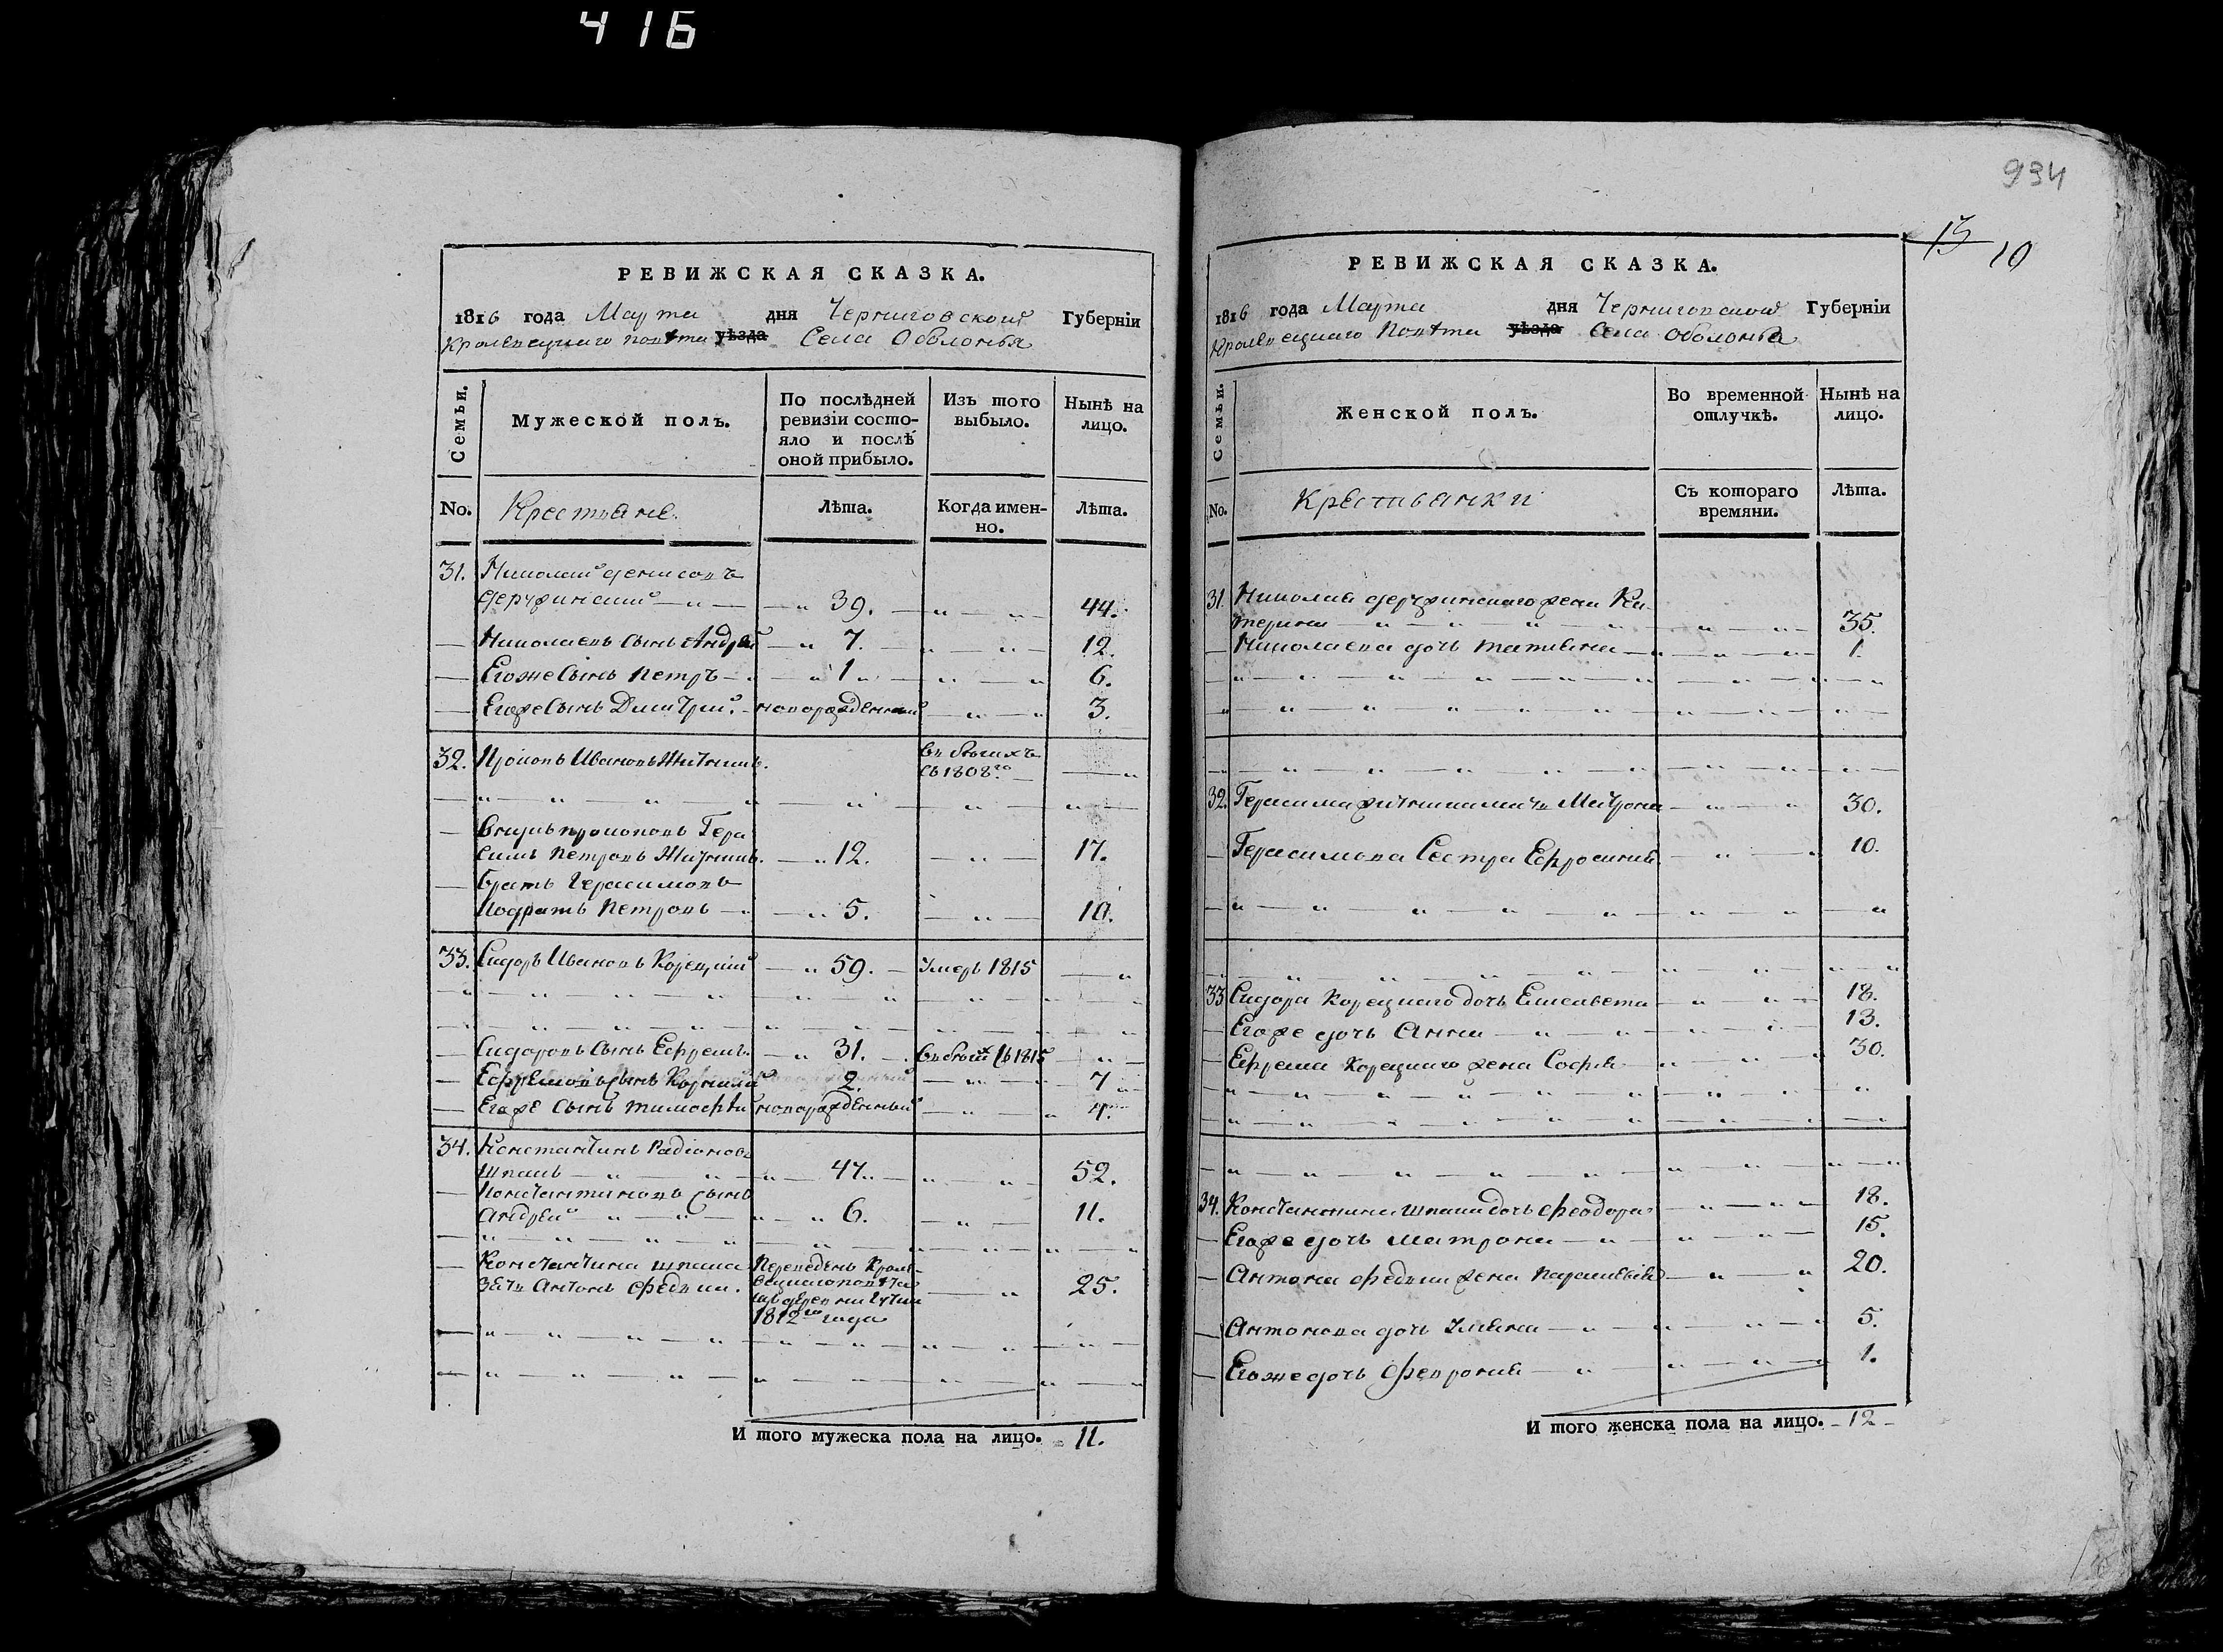 416
РЕВИЖСКАЯ СКАЗКА.
1816 года Марта дня Черниговской Губернїи
Кролевецкаго повѣта уѣзда Села Оболонья
Семьи. Мужеской полъ. По послѣдней ревизїи состояло и послѣ оной прибыло. Изъ того выбыло. Нынѣ на лицо.
No. Крестьяне. Лѣта. Когда именно. Лѣта.
31. Николай Денисовъ
39. 44.
Николаевъ Сынъ Андрей 7. 12.
Егоже Сынъ Петръ 1 6.
Егоже Сынъ Димитрий новорожденный 3.
32. Прокопъ Ивановъ Житникъ. въ бѣгахъ
съ 1808го
Внукъ прокоповъ Гера
симъ Петровъ Житникъ. 12. 17.
братъ Герасимовъ
Кодратъ Петровъ 5. 10.
33. Сидоръ Ивановъ Корецкий 59. Умеръ 1815
Сидоровъ Сынъ Ефремъ. 31. съ 1815
Ефремовъ Сынъ Корнилий 2. 7
Егоже Сынъ тимофѣй новорожденный 4.
34. Константинъ Радіоновъ
Шпакъ 47. 52.
Константиновъ Сынъ
Андрей 6. 11.
Константина шпака Переведенъ Кроле
зять Антонъ Федьки. вецкаго повѣта 25.
изъ деревни
1812го года
И того мужеска пола на лицо. 11.
934
15 10
РЕВИЖСКАЯ СКАЗКА.
1816 года Марта дня Черниговской Губернїи
Кролевецкаго Повѣта уѣзда Села Оболонья
Семьи. Женской полъ. Во временной отлучкѣ. Нынѣ на лицо.
No. Крестьянки Съ котораго времяни. Лѣта.
31. Николая жена Ка
терина 35.
Николаева дочь татьяна 1.
32. Герасима житника мать Матрона 30.
Герасимова Сестра Ефросиния 10.
33 Сидора Корецкаго дочь Елисавета 18.
Егоже дочь Анна 13.
Ефрема Корецкаго жена Софья 30.
34. Константина шпака дочь Феодора 18.
Егоже дочь матрона 15.
Антона Федьки жена Параскевія 20.
Антонова дочь Уляна 5.
Егоже дочь Феврония 1.
И того женска пола на лицо. 12